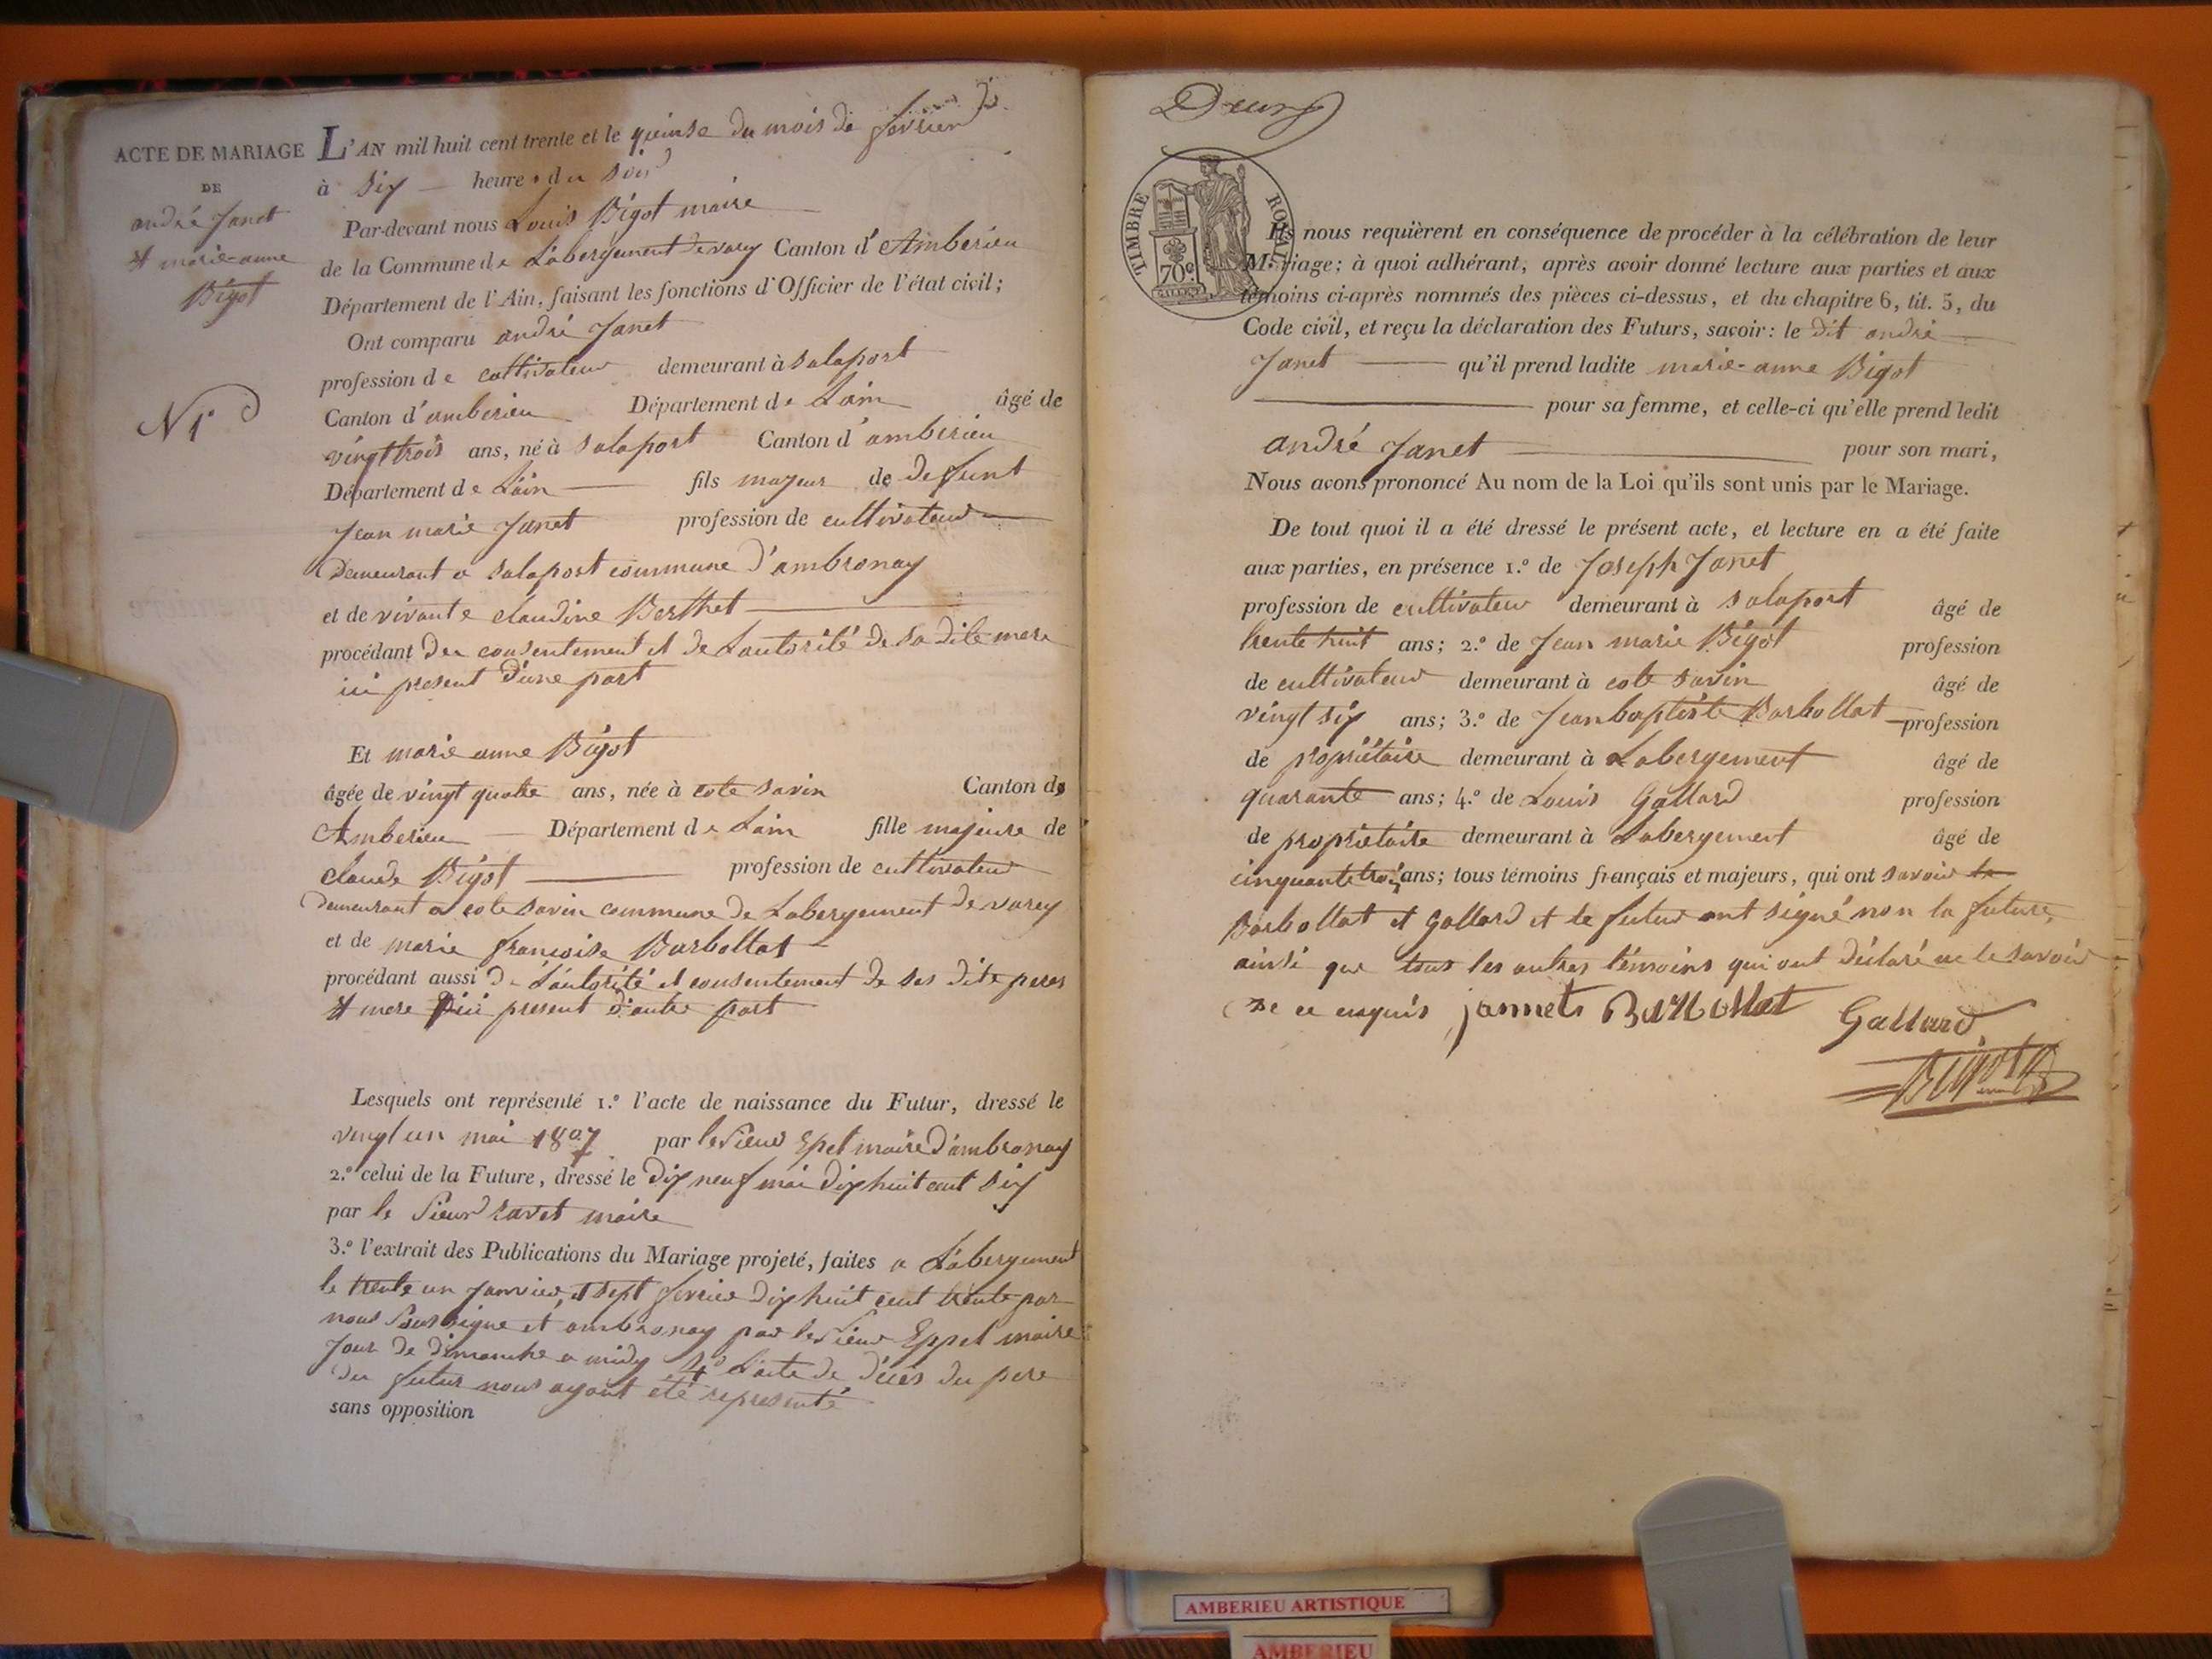 ACTE DE MARIAGE
DE
andré Janet
et marie-anne
Bigot
N 1er
L'AN mil huit cent trente et le quinse du mois de fevrier
à six heures du soir
Par-devant nous Louis Bigot maire
de la Commune de Labergement de varey Canton d'Amberieu
Département de l'Ain, faisant les fonctions d'Officier de l'état civil;
Ont comparu andré Janet
profession de cultivateur demeurant à salaport
Canton d'amberieu Département de Lain âgé de
vingt trois ans, né à salaport Canton d'amberieu
Département de Lain fils majeur de deffunt
Jean marie Janet profession de cultivateur
Demeurant a salaport commune d'ambronay
et de vivante claudine Berthet
procédant du consentement et de Lautorité de sa dite mere
ici present d'une part
Et marie anne Bigot
âgée de vingt quatre ans, née à cote savin Canton de
Amberieu Département de Lain fille majeure de
claude Bigot profession de cultivateur
Demeurant a cote savin commune de Labergement de varey
et de marie francoise Barbollat
procédant aussi de Lautorité et consentement de ses dits peres
et mere ici present d'autre part
Lesquels ont représenté 1.º l'acte de naissance du Futur, dressé le
vingt un mai 1807 par le sieur Epel maire d'ambronay
2.º celui de la Future, dressé le dix neuf mai dix huit cent six
par le sieur savet maire
3.º l'extrait des Publications du Mariage projeté, faites a Labergement
le trente un Janvier, et sept fevrier dix huit cent trente par
nous soussigné et ambronay par le sieur Eppel maire
Jour de dimanche a midy 4º Lacte de décès du pere
du futur nous ayant été representé
sans opposition
Deux
TIMBRE ROYAL
70c
Ils nous requièrent en conséquence de procéder à la célébration de leur
Mariage; à quoi adhérant, après avoir donné lecture aux parties et aux
témoins ci-après nommés des pièces ci-dessus, et du chapitre 6, tit. 5, du
Code civil, et reçu la déclaration des Futurs, savoir: le dit andré
Janet qu'il prend ladite marie-anne Bigot
pour sa femme, et celle-ci qu'elle prend ledit
andré Janet pour son mari,
Nous avons prononcé Au nom de la Loi qu'ils sont unis par le Mariage.
De tout quoi il a été dressé le présent acte, et lecture en a été faite
aux parties, en présence 1.º de Joseph Janet
profession de cultivateur demeurant à salaport âgé de
trente huit ans; 2.º de Jean marie Bigot profession
de cultivateur demeurant à cote savin âgé de
vingt six ans; 3.º de Jean baptiste Barbollat profession
de propriétaire demeurant à Labergement âgé de
quarante ans; 4.º de Louis Gallard profession
de propriétaire demeurant à Labergement âgé de
cinquante trois ans; tous témoins français et majeurs, qui ont savoir
Barbollat et Gallard et le futur ont signé non la future,
ainsi que tous les autres témoins qui ont déclaré ne le savoir
de ce enquis jannets Barbollat Gallard
Bigot
AMBERIEU ARTISTIQUE
AMBERIEU